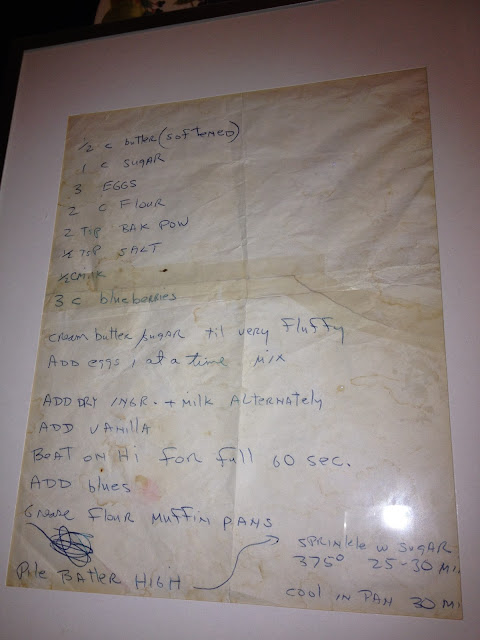 ½ c butter (softENED)
1 c SUGAR
3 EGGS
2 c FLOUR
2 Tsp BAK POW
½ TSP SALT
½ C MILK
3 c blueberries
cream butter/sugar til very fluffy
ADD eggs 1 at a time MIX
ADD DRY INGR. + MILK ALTERNATELY
ADD VANILLA
BEAT ON Hi FOR full 60 sec.
ADD blues
Grease Flour MUFFIN PANS
Pile BATTER HIGH
SPRINKLE W SUGAR
375° 25-30 MI
COOL IN PAN 30 MI